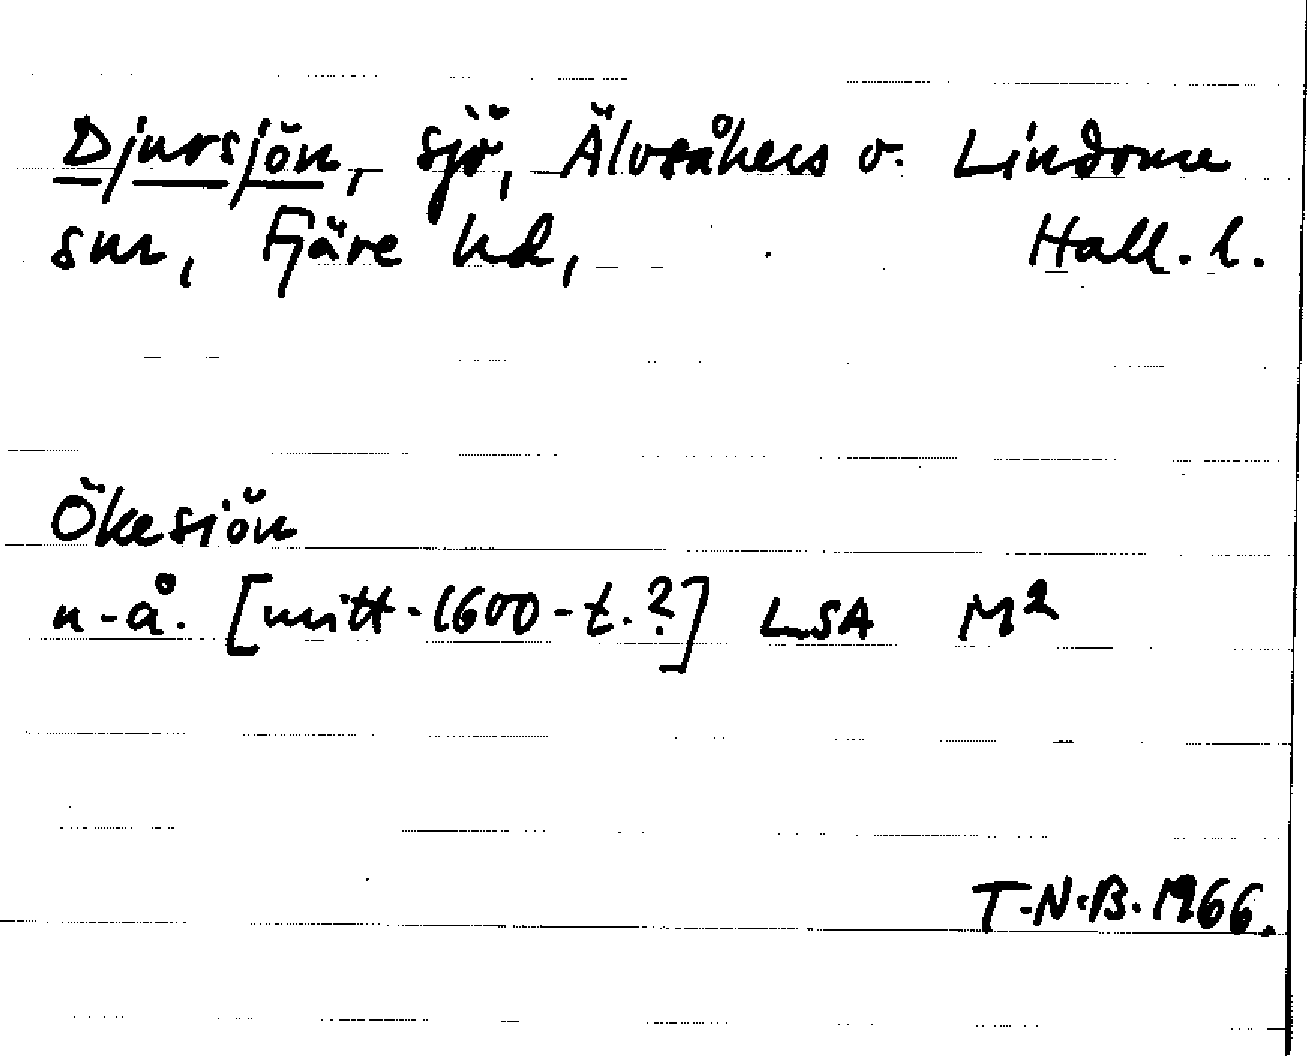 Djursjön, sjö, Älvsåkers o. Lindome
snr, Fjäre hd, Hall. l.
Ökesiön
n-å. [mitt-1600-t.?] LSA M2
T.N.B. 1966.